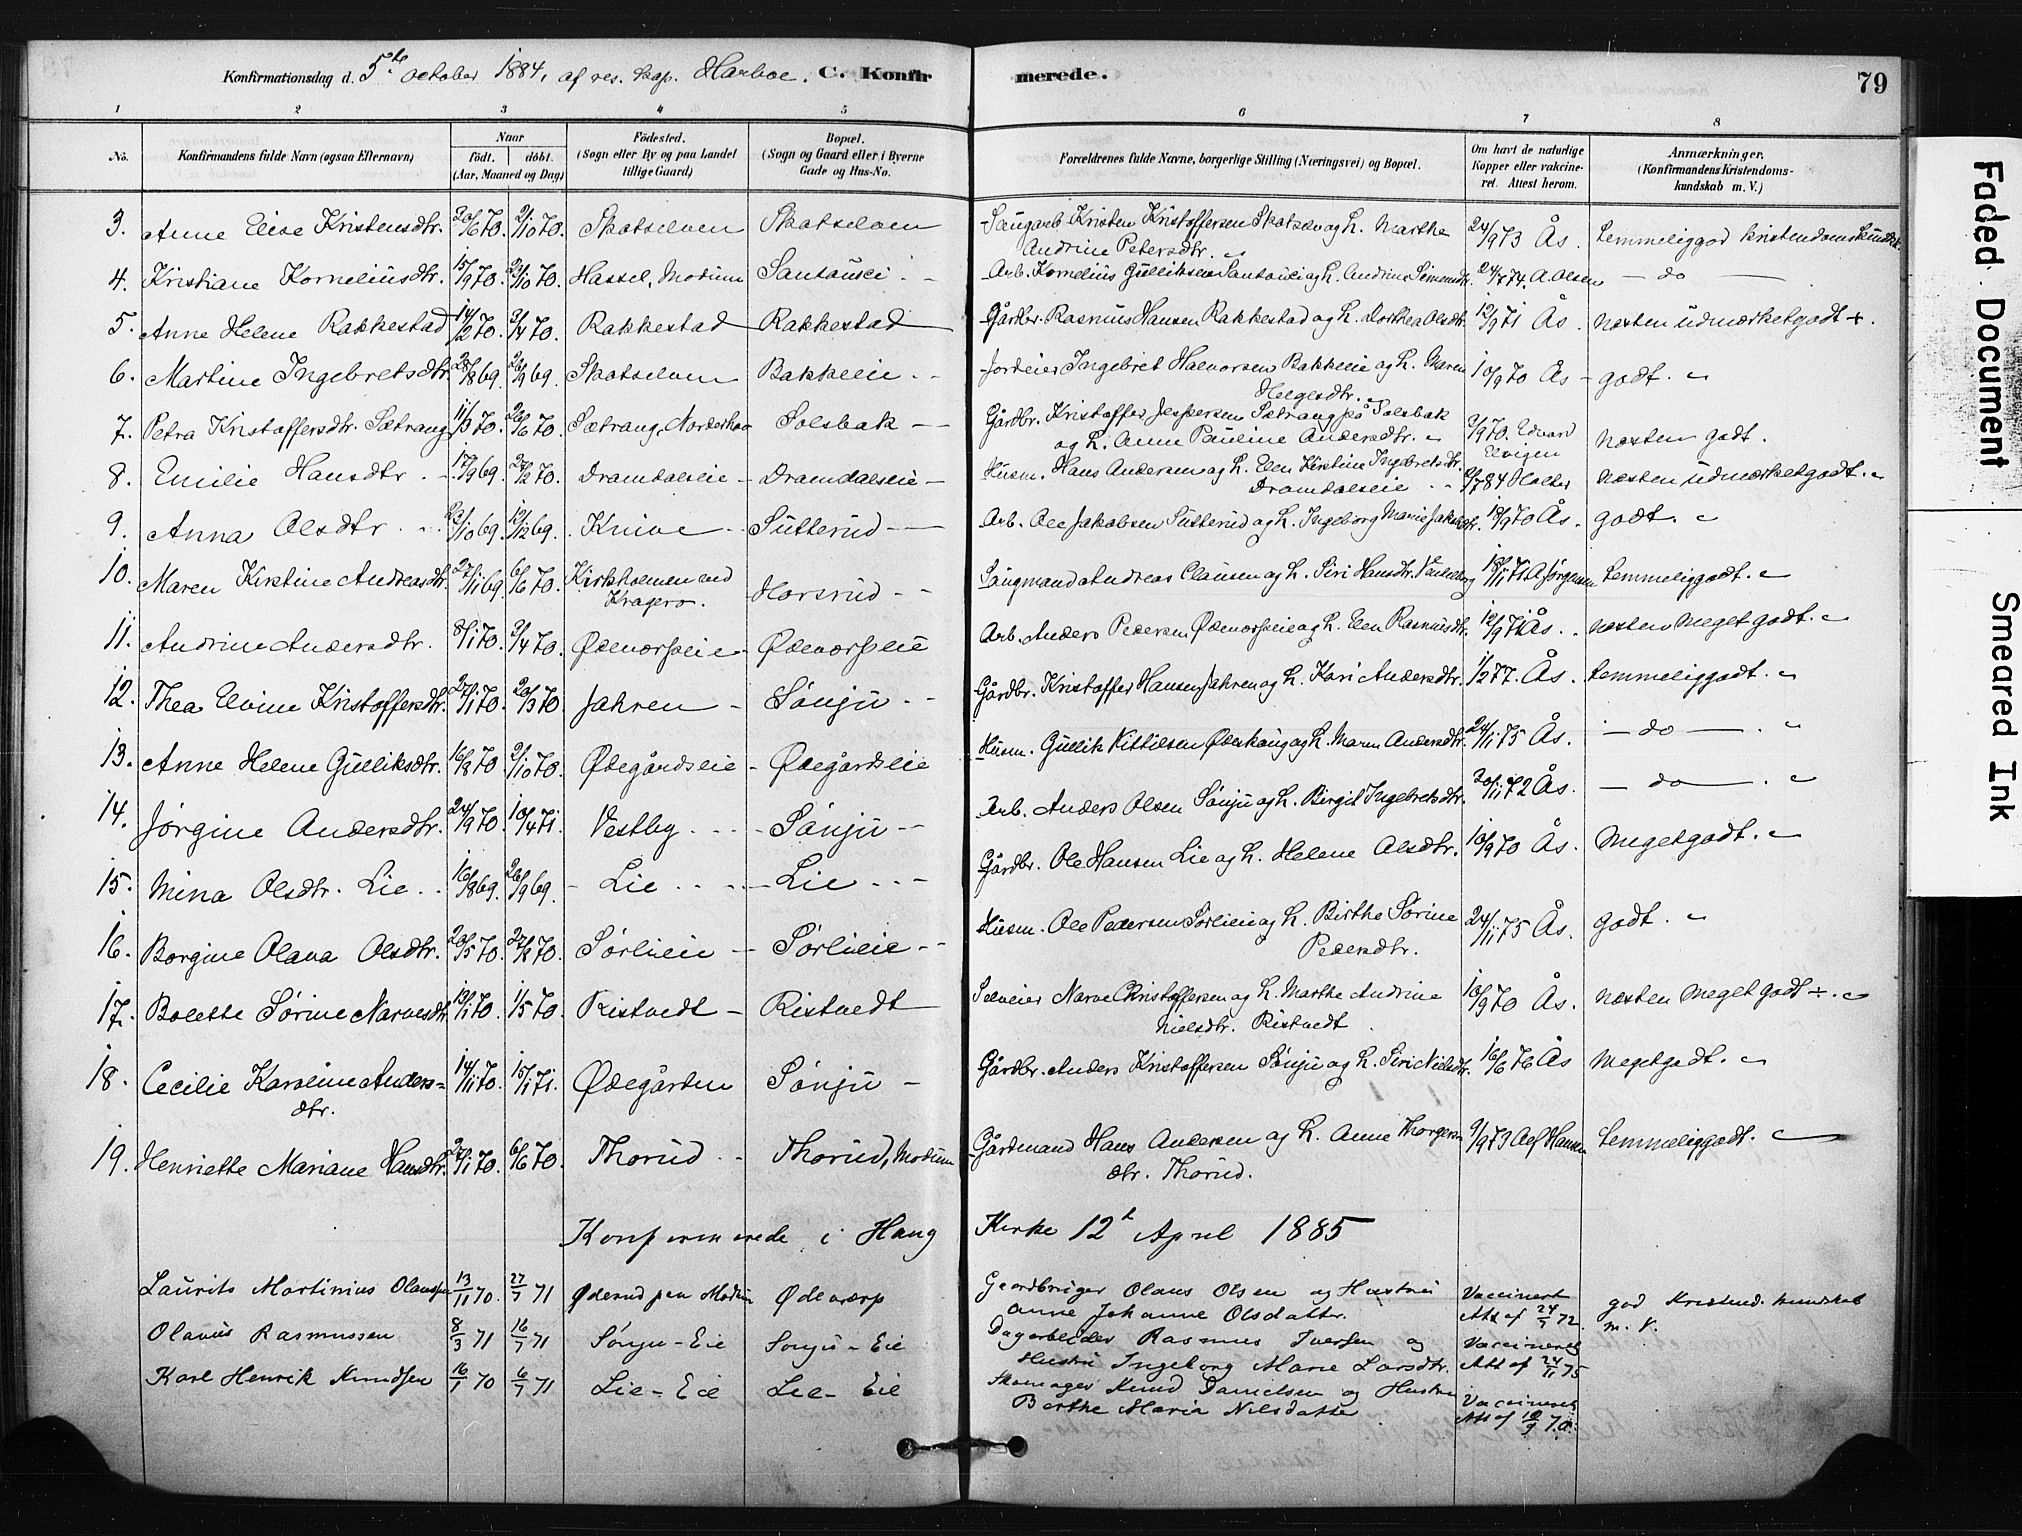 Konfirmationsdag d. 5te october 1884, af res. kap. Harboe. C. Konfirmerede. 79
1 2 3 4 5 6 7 8
No. Konfirmandens fulde Navn (ogsaa Efternavn) Naar født. døbt. (Aar, Maaned og Dag) Fødested. (Sogn eller By og paa Landet tillige Gaard) Bopæl. (Sogn og Gaard eller i Byerne Gade og Hus-No. Forældrenes fulde Navne, borgerlige Stilling (Næringsvei) og Bopæl. Om havt de naturlige Kopper eller vakcineret. Attest herom. Anmærkninger. (Konfirmandens Kristendomskundskab m. V.)
3. Anne Elise Kristensdtr. 20/6 70. 2/10 70. Skotselven Skotselven Saugarb Kristen Kristoffersen Skotselv og h. Marthe Andrine Petersdtr. 24/9 73 Ås. Temmeliggod kristendomskundsk.
4. Kristiane Korneliusdtr. 15/9 70. 23/10 70. Hassel, Modum Santausei Arb. Kornelius Gulliksen Santausei og h. Andrine Simensdtr. 24/7 74. A. Olsen – do –
5. Anne Helene Rakkestad 14/2 70. 3/4 70. Rakkestad Rakkestad Gårdbr. Rasmus Hansen Rakkestad og h. Dorthea Olsdtr. 12/9 71 Ås. Næsten udmerketgodt +.
6. Martine Ingebretsdtr. 28/8 69. 26/9 69. Skotselven Bakkeeie Jordeier Ingebret Halvorsen Bakkeeie og h. Maren Helgesdtr. 10/9 70 Ås – godt.
7. Petra Kristoffersdtr. Sætrang 11/3 70. 26/6 70. Sætrang, Norderhov Solsbak Gårdbr. Kristoffer Jespersen Sætrang på Solsbak og h. Anne Pauline Andersdtr. 2/9 70. Edvard Elvigen Næsten godt.
8. Emilie Hansdtr. 17/9 69. 27/2 70. Dramdalseie Dramdalseie Husm. Hans Andersen og h. Elen Kirstine Ingebretsdtr. Dramdalseie 2/7 84 Holter Næsten udmerketgodt.
9. Anna Olsdtr. 23/10 69. 12/12 69. Knive Sutterud Arb. Ole Jakobsen Sutterud og h. Ingeborg Marie Jakobsdtr. 18/9 70 Ås. godt.
10. Maren Kirstine Andreasdtr. 27/11 69. 6/6 70. Kirkholmen ved Kragerø. Horsrud Saugmand Andreas Clausen og h. Siri Hansdtr. 18/11 71 A Jørgensen Temmeliggodt.
11. Andrine Andersdtr. 8/1 70. 3/4 70. Ødeværpeie Ødeværpeie Arb. Anders Pedersen Ødeværpeie og h. Elen Rasmusdtr. 12/9 71 Ås. Næsten Meget godt.
12. Thea Elvine Kristoffersdtr. 27/1 70. 20/3 70. Jahren Sønju Gårdbr. Kristoffer Hansen Jahren og h. Kari Andersdtr. 1/2 77. Ås. Temmeliggodt.
13. Anne Helene Gulliksdtr. 16/8 70 2/10 70. Ødegårdseie Ødegårdseie Husm. Gullik Kittilsen Øderhaug og h. Maren Andersdtr. 24/11 75 Ås. – do –
14. Jørgine Andersdtr. 24/9 70. 10/4 71. Vestby Sønju Arb. Anders Olsen Sønju og h. Birgit Ingebretsdtr. 20/11 72 Ås. – do –
15. Mina Olsdtr. Lie 16/8 69. 26/9 69. Lie Lie Gårdbr. Ole Hansen Lie og h. Helene Olsdtr. 10/9 70 Ås. Megetgodt.
16. Borgine Olava Olsdtr. 20/5 70. 27/8 70. Sørlieie Sørlieie Husm. Ole Pedersen Sørlieie og h. Birthe Sørine Pedersdtr. 24/11 75 Ås. godt.
17. Bolette Sørine Narvesdtr 13/1 70. 1/5 70. Ristvedt Ristvedt Selveier Narve Christoffersen og h. Marthe Andrine Nielsdtr. Ristvedt 10/9 70 Ås. Næsten Meget godt ÷.
18. Cecilie Karoline Andersdtr. 14/11 70. 15/1 71. Ødegården Sønju Gårdbr. Anders Kristoffersen Sønju og h. Siri Nielsdtr. 16/6 76 Ås Megetgodt.
19. Henriette Mariane Hansdtr. 24/1 70. 6/6 70. Thorud Thorud, Modum Gårdmand Hans Andersen og h. Anne Thorgersdtr. Thorud. 9/9 73 Alf Hansen Temmeliggodt.
Konfirmerede i Haug Kirke 12t April 1885
Laurits Martinius Olaussen 13/11 70. 27/7 71 Øderud paa Modum Ødeværp Gaardbruger Olaus Olsen og Hustru Anne Johanne Olsdatter. Vaccineret Att af 24/7 72. god Kristend. kundskab m. V.
Olavus Rasmussen 8/3 71 16/7 71 Sønju-Eie Sonju-Eie Dagarbeider Rasmus Iversen og Hustru Ingeborg Marie Larsdtr. Vaccineret Att af 24/11 75
Karl Henrik Knudsen 16/1 70 6/7 71 Lie-Eie Lie-Eie Skomager Knud Danielsen og Hustru Berthe Maria Nilsdatter Vaccineret Att af 10/9 70.
Faded Document
Smeared Ink